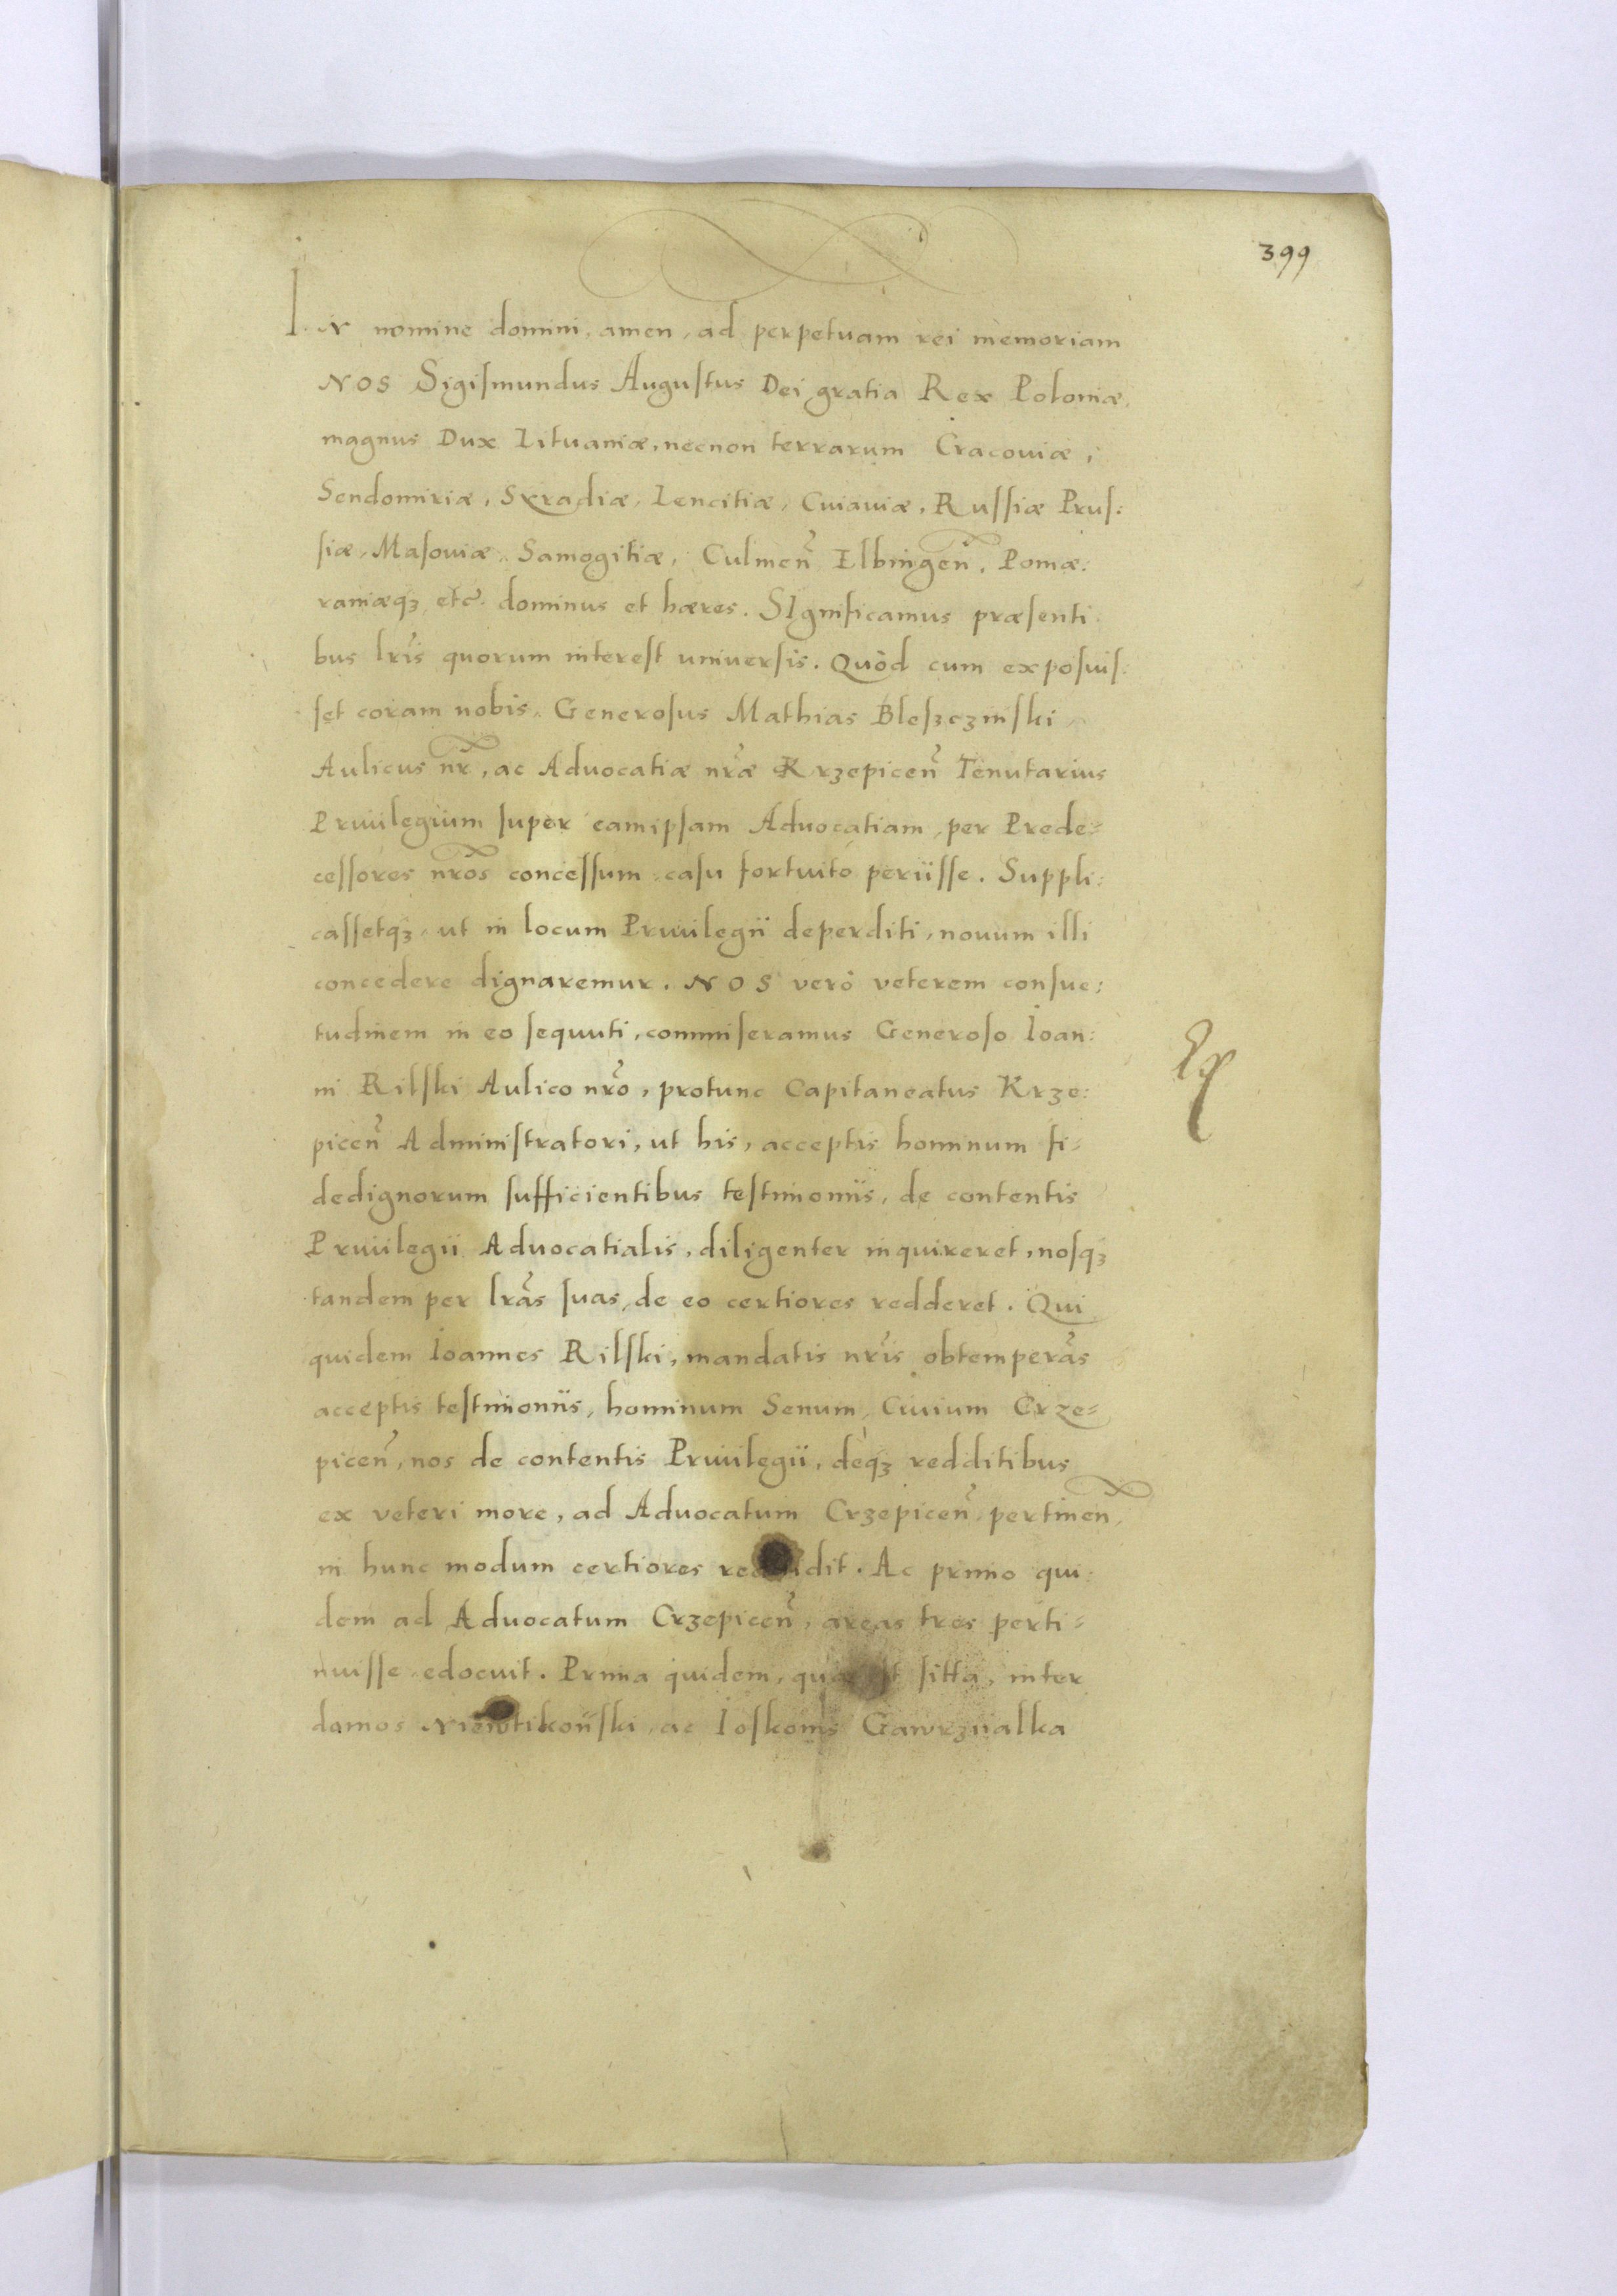 399
IN nomine domini, amen, ad perpetuam rei memoriam
NOS Sigiſmundus Auguſtus Dei gratia Rex Poloniæ,
magnus Dux Lituaniæ, necnon terrarum Cracouiæ,
Sendomiriæ, Syradiæ, Lencitiæ, Cuiauiæ, Ruſſiæ Pruſ:
ſiæ, Maſouiæ, Samogitiæ, Culmen̄ Elbingen̄, Pomæ:
raniæqꝫ etc̄. dominus et hæres. SIgnificamus præſenti
bus lr̄is quorum intereſt uniuerſis. Quòd cum expoſuiſ:
ſet coram nobis, Generoſus Mathias Bleſzczinſki
Aulicus nr̄, ac Aduocatiæ nr̄æ Krzepicen̄ Tenutarius
Priuilegium ſuper eamipſam Aduocatiam, per Prede=
ceſſores nr̄os conceſſum caſu fortuito periiſſe. Suppli:
caſſetqꝫ, ut in locum Priuilegii deperditi, nouum illi
concedere dignaremur. NOS verò veterem conſue:
tudinem in eo ſequuti, commiſeramus Generoſo Ioan:
ni Rilſki Aulico nr̄o, protunc Capitaneatus Krze:
picen̄ Adminiſtratori, ut his, acceptis hominum fi=
dedignorum ſufficientibus teſtimoniis, de contentis
Priuilegii Aduocatialis, diligenter inquireret, noſqꝫ
tandem per lr̄as ſuas, de eo certiores redderet. Qui
quidem Ioannes Rilſki, mandatis nr̄is obtemperās
acceptis teſtimoniis, hominum Senum, Ciuium Crze=
picen̄, nos de contentis Priuilegii, deqꝫ redditibus
ex veteri more, ad Aduocatum Crzepicen̄, pertinen̄,
in hunc modum certiores reddidit. Ac primo qui:
dem ad Aduocatum Crzepicen̄, areas tres perti=
nuiſſe edocuit. Prima quidem, quæ eſt ſitta, inter
domos ac Gawrziialka